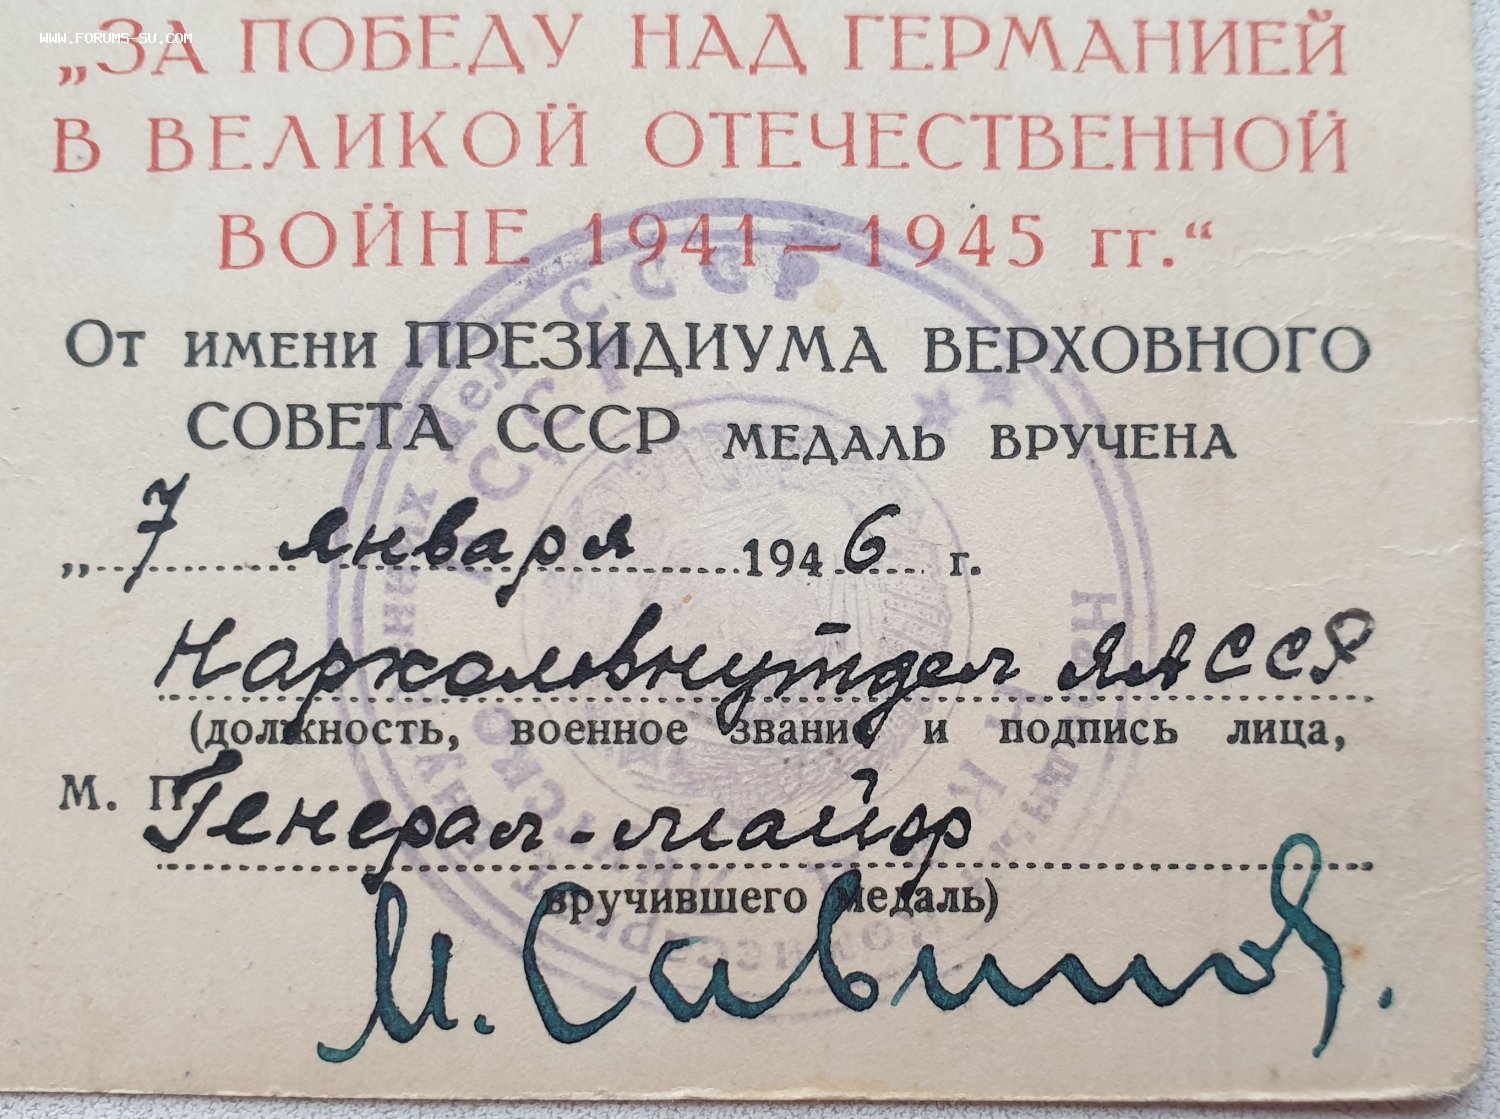 WWW.FORUMS-SU.COM
„ЗА ПОБЕДУ НАД ГЕРМАНИЕЙ
В ВЕЛИКОЙ ОТЕЧЕСТВЕННОЙ
ВОЙНЕ 1941—1945 гг.“
От имени ПРЕЗИДИУМА ВЕРХОВНОГО
СОВЕТА СССР МЕДАЛЬ ВРУЧЕНА
„7 января 1946 г.
Наркомвнутдел ЯАССР
(должность, военное звание и подпись лица,
М. П.
Генерал-майор
вручившего медаль)
И. Савинов.